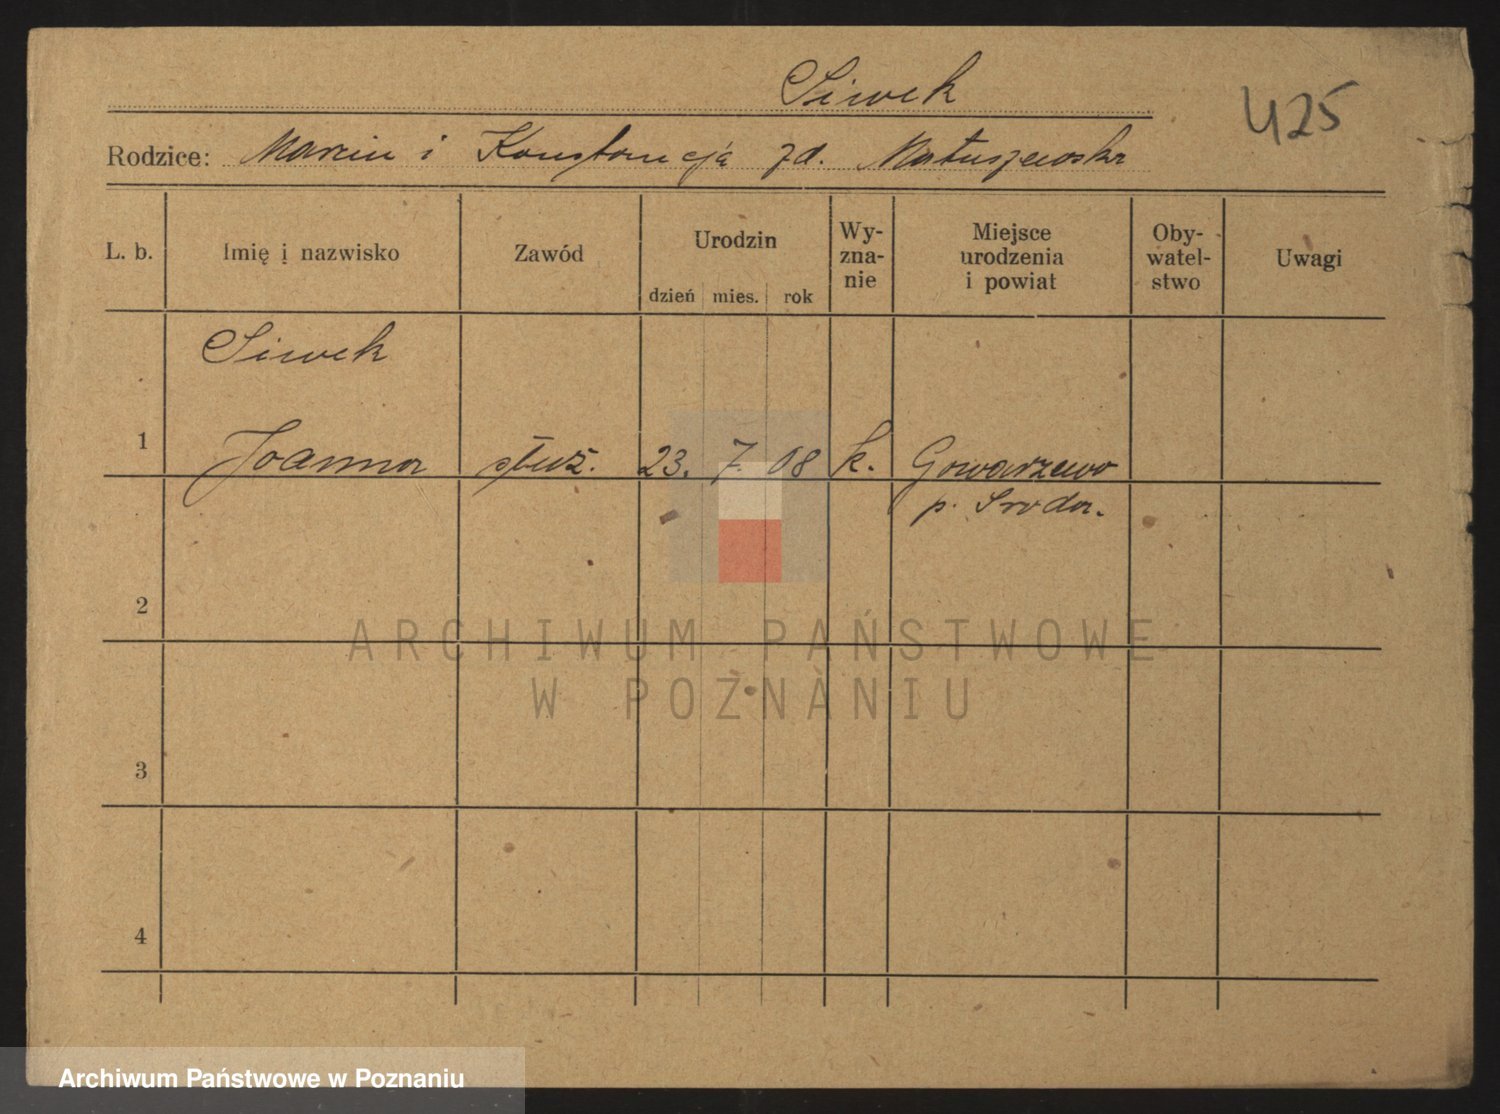 Siwek
425
Rodzice: Marcin i Konstancja zd. Matuszewska
L. b. Imię i nazwisko Zawód Urodzin dzień mies. rok Wy-zna-nie Miejsce urodzenia i powiat Oby-watel-stwo Uwagi
Siwek
1 Joanna służ. 23. 7. 08 k. Gowarzewo
p. Sroda.
2
ARCHIWUM PAŃSTWOWE
W POZNANIU
3
4
Archiwum Państwowe w Poznaniu